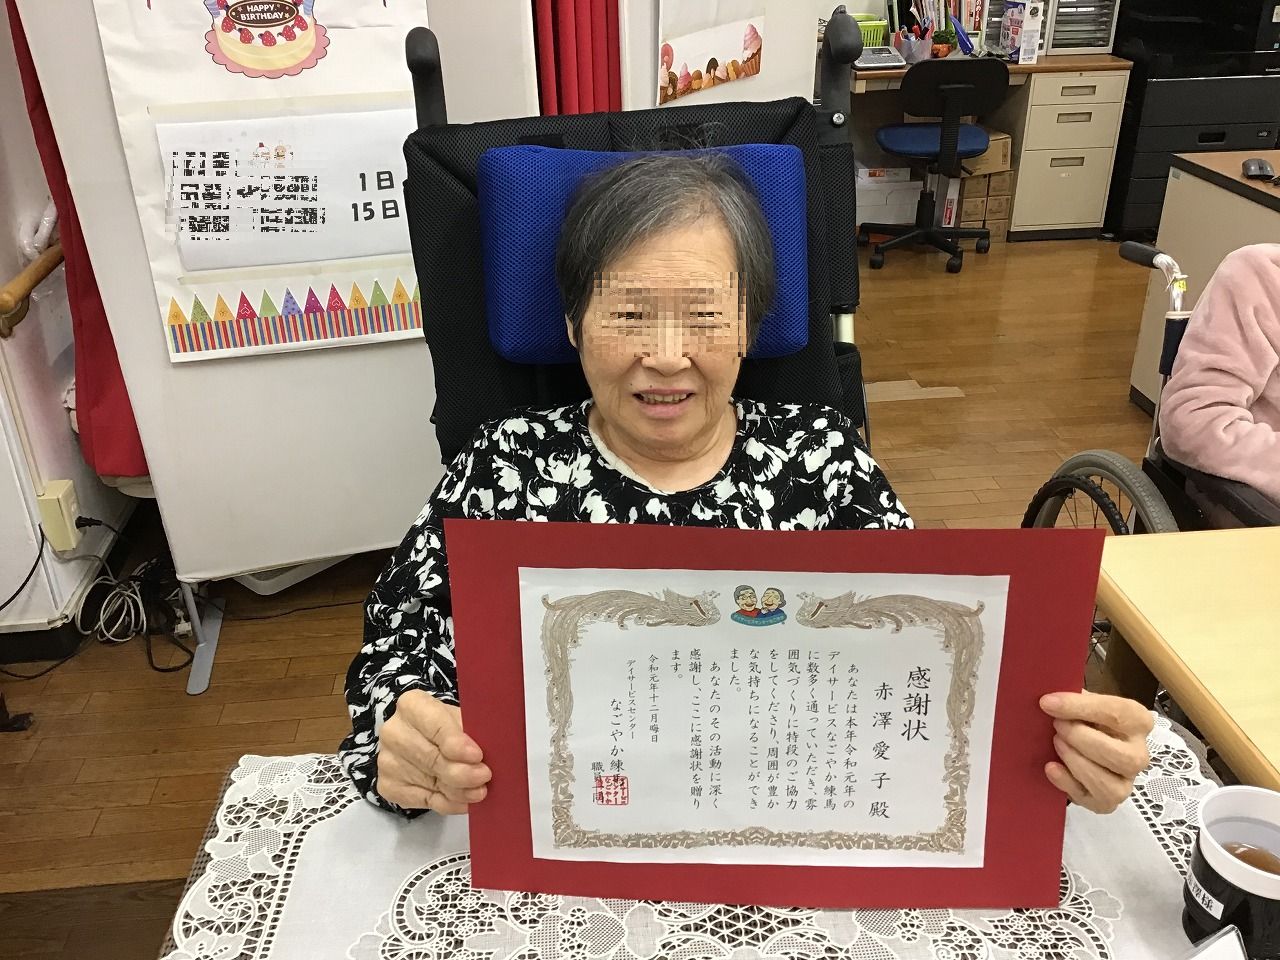 HAPPY
BIRTHDAY
1日
15日
感謝状
赤澤愛子殿
あなたは本年令和元年の
デイサービスなごやか練馬
に数多く通っていただき、雰
囲気づくりに特段のご協力
をしてくださり、周囲が豊か
な気持ちになることができ
ました。
あなたのその活動に深く
感謝し、ここに感謝状を贈り
ます。
令和元年十二月晦日
デイサービスセンター
なごやか練
職員